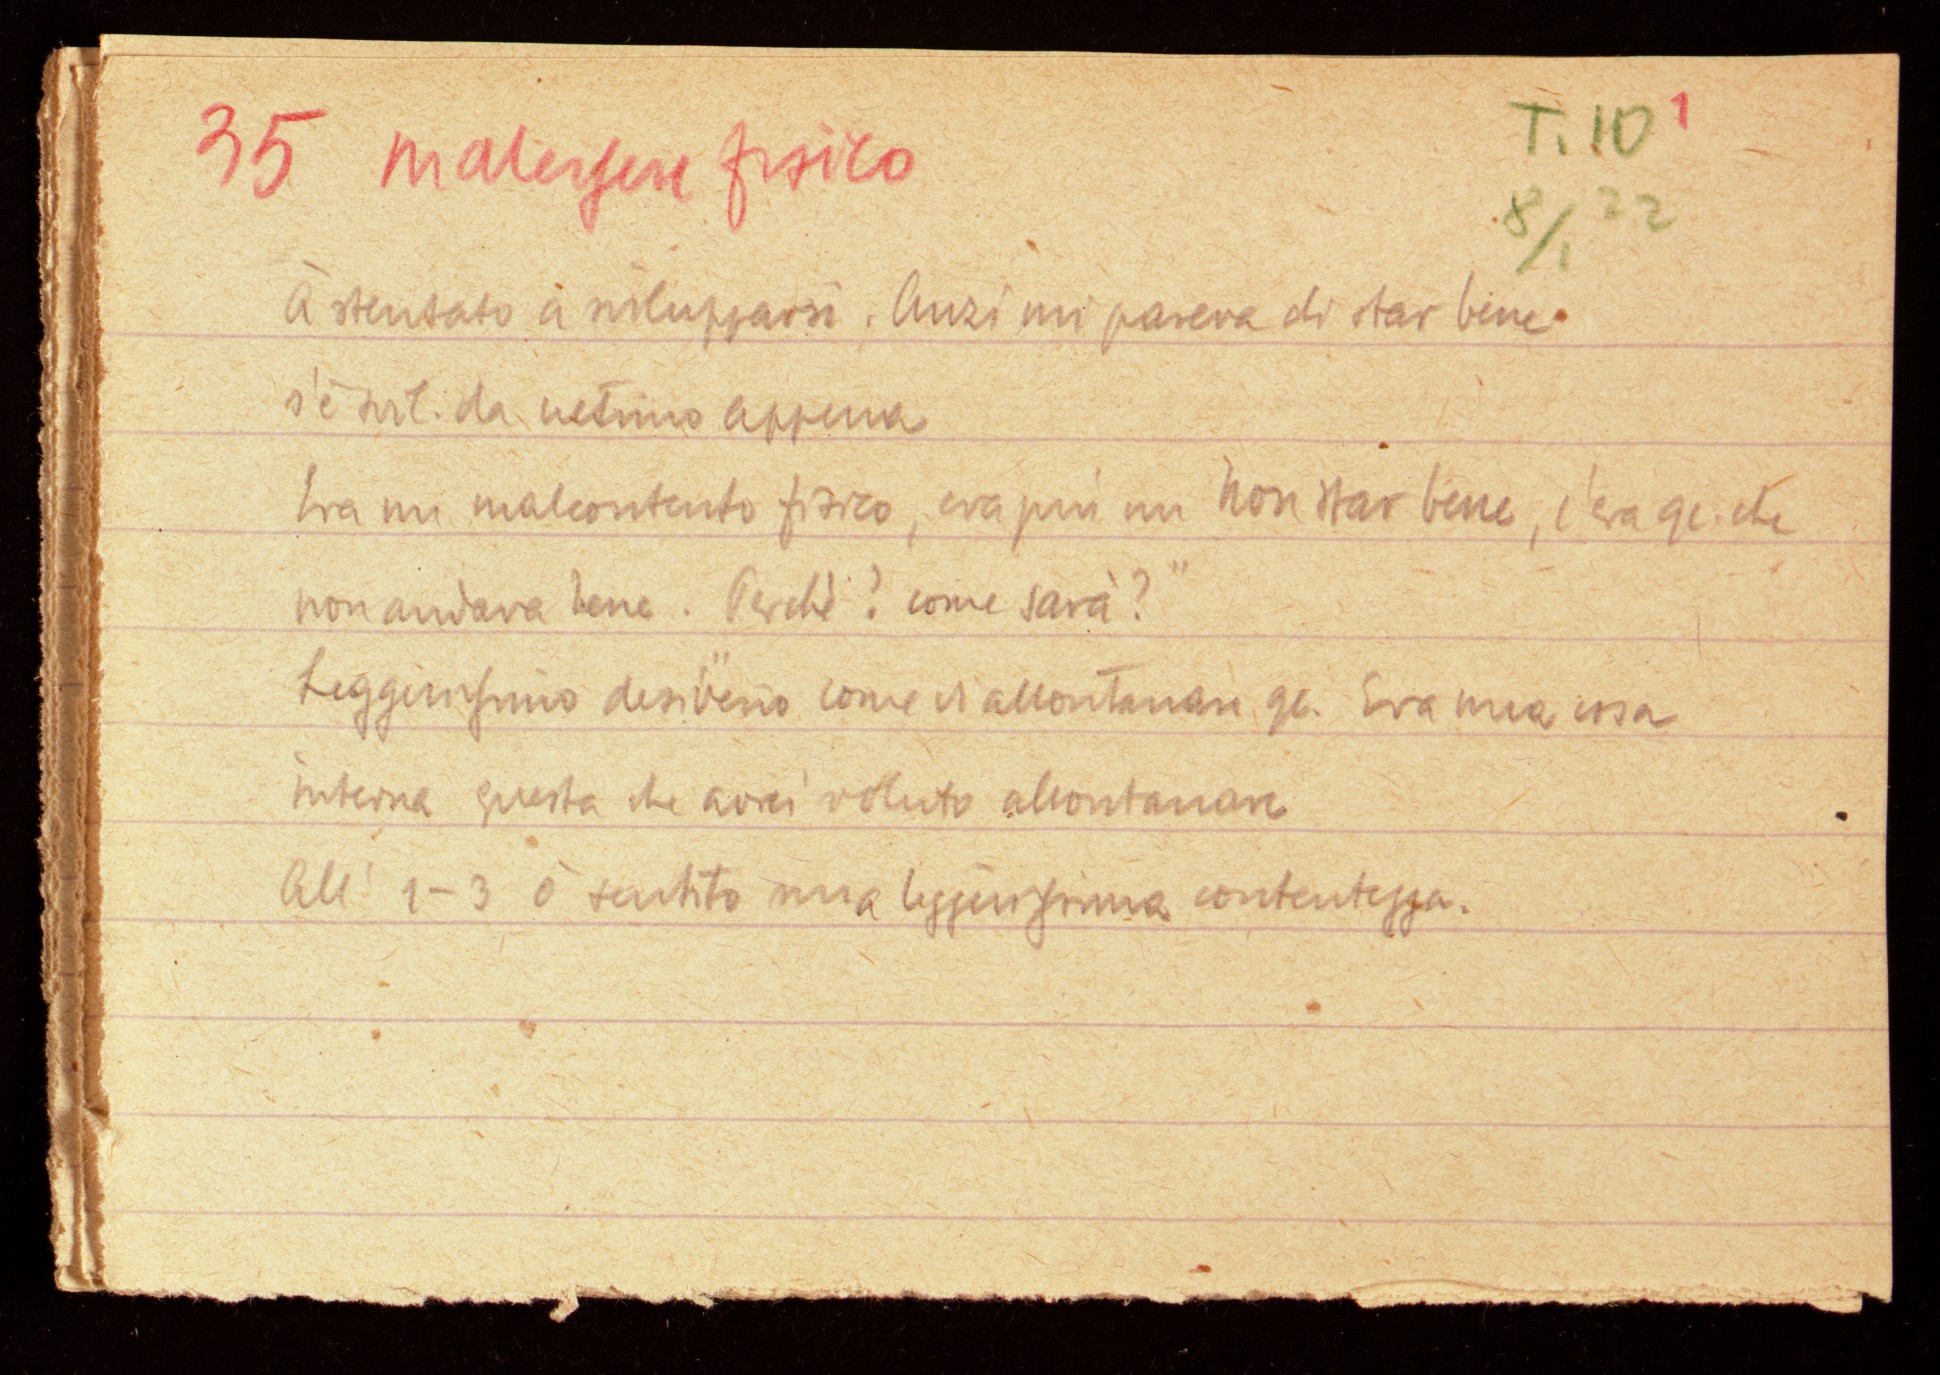 35 malessere fisico
T. 10 1
8/1 22
À stentato a svilupparsi. Anzi mi pareva di star bene.
s'è svil. da ultimo appena
Era un malcontento fisico, era più un non star bene, c'era qc. che
non andava bene. Perché? come sarà?"
Leggerissimo desiderio come di allontanare qc. Era una cosa
interna questa che avrei voluto allontanare
All' 1-3 ò sentito una leggerissima contentezza.